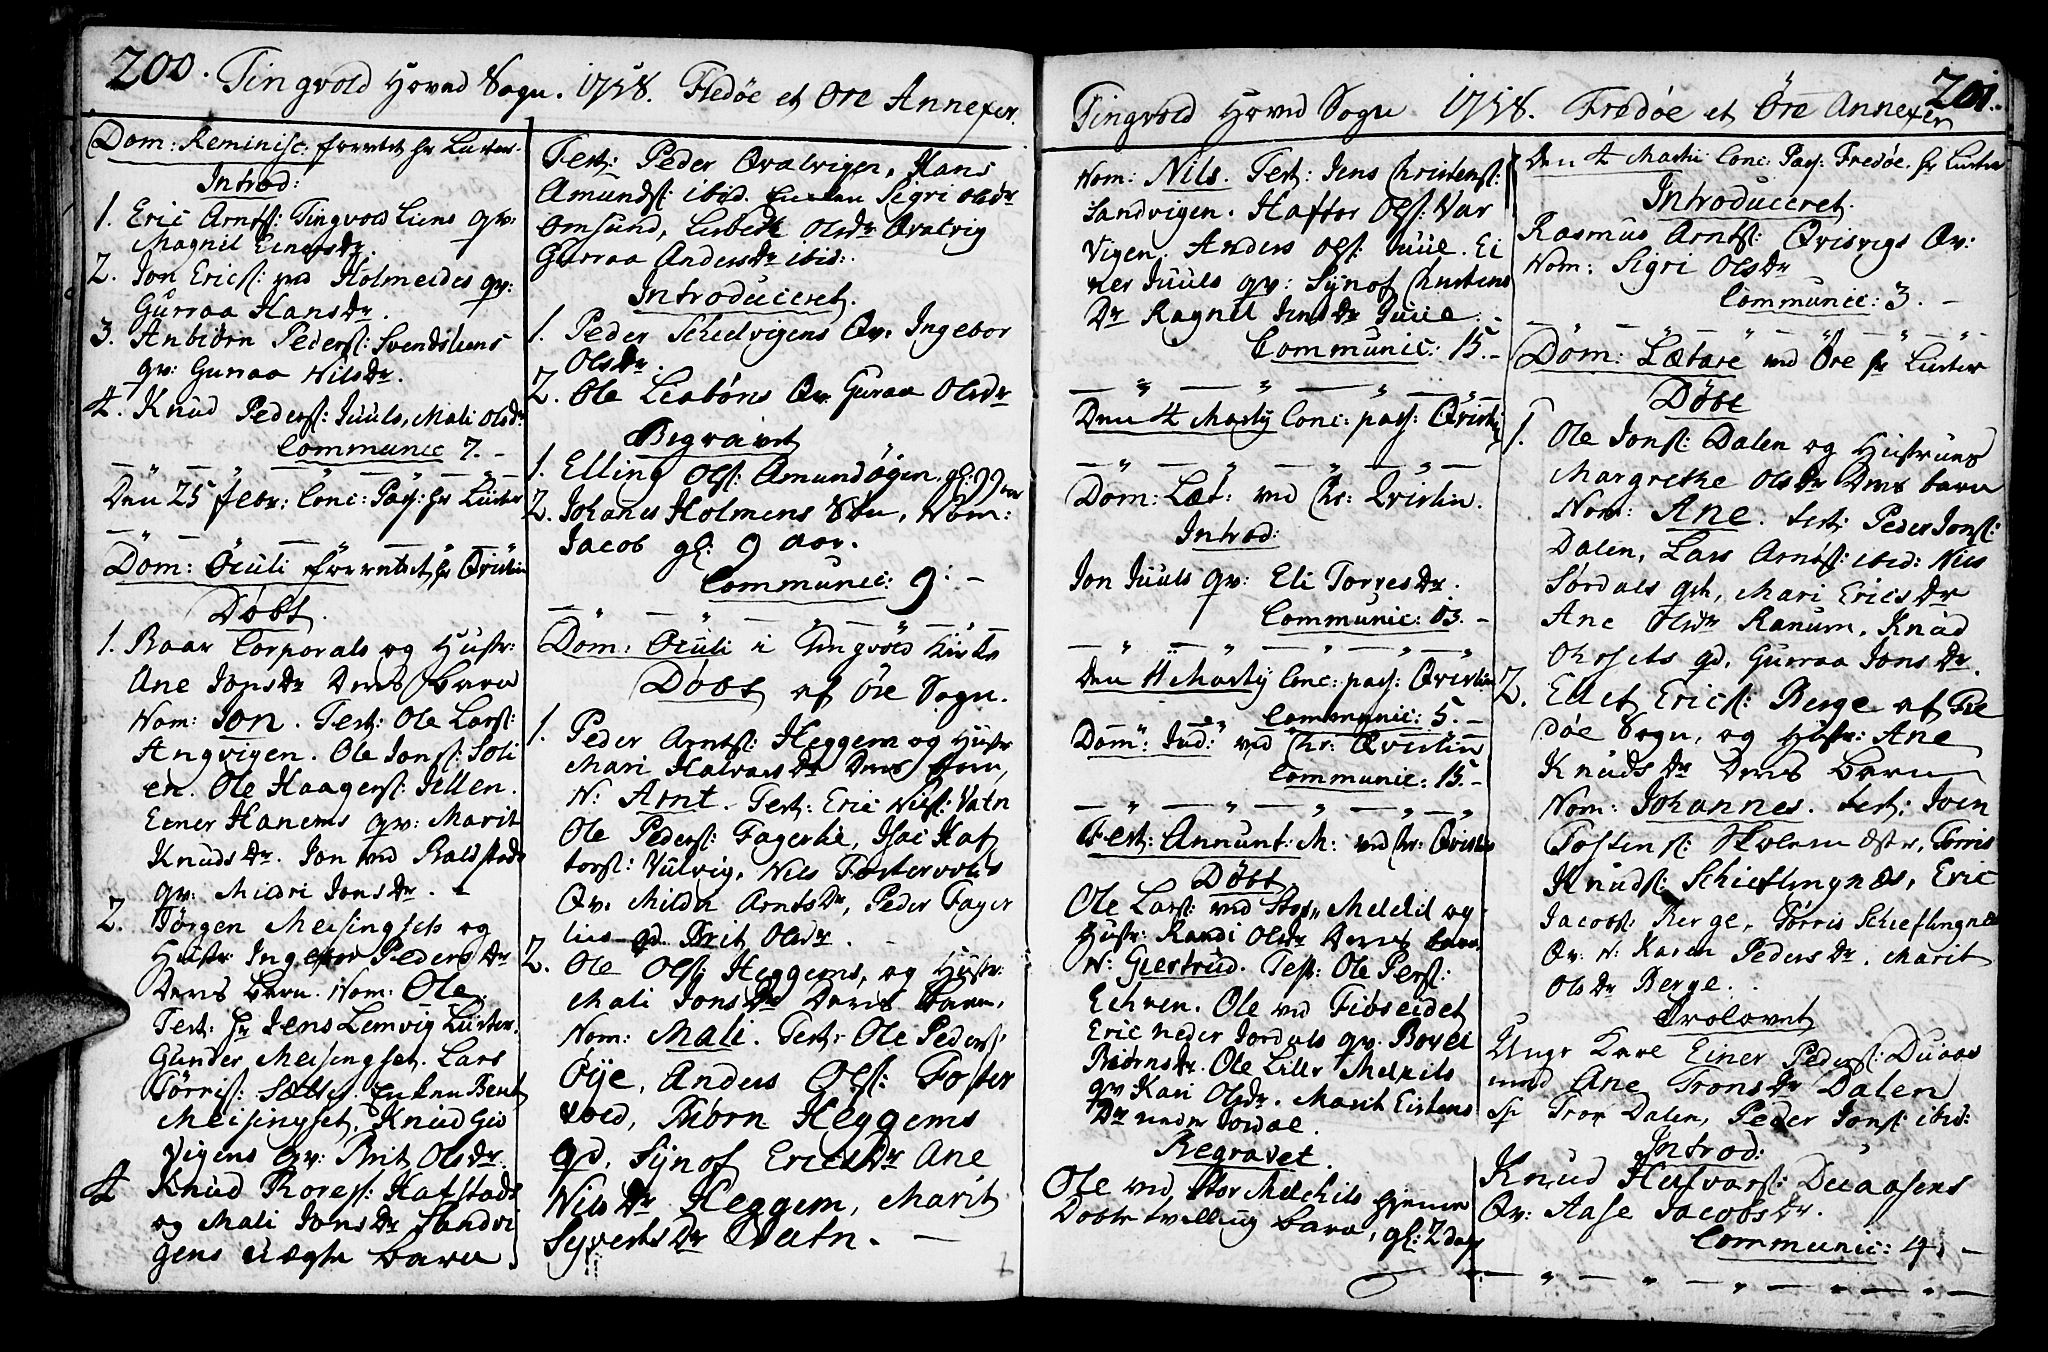 200. Tingvold Hoved Sogn. 1758. Fredøe et Øre Annexer.
Dom: Reminisc: forretet hr Luster.
Introd:
1. Eric Arntſ: Tingvold Liens qv:
Magnil Einersdr.
2. Jon Ericſ: ved Holmeides qv:
Gurraa Hansdr.
3. Anbiørn Pederſ: Svendsliens
qv: Guraa Nilsdr.
4. Knud Pederſ: Juuls, Mali Olsdr
Communic 7. -
Den 25 Febr: Conc: Paſ: hr Luster
Dom: Oculi forretet hr Qvistin
Døbt.
1. Roar Corporals og Hustr:
Ane Jonsdr Deres Barn
Nom: Jon. Test: Ole Larſ:
Angvigen. Ole Jonſ: Soli
en. Ole Haagenſ: Jellen.
Einer Hanems qv: Marit
Knudsdr. Jon ved Raldstads
qv: Mildri Jonsdr.
2. Jørgen Meisingsets og
Hustr: Ingebor Pedersdr
Deres Barn. Nom: Ole
Test: hr Jens Lemvig Luster.
Gunder Meisingset. Lars
Tørriſ: Sættes. Enken Berit
Meisingset, Knud Gid
vigens qv: Brit Olsdr.
4 Knud Roreſ: Hafstads
og Mali Jonsdr Sandvi
gens uægte Barn
Test: Peder Qvalvigen, Hans
Amundſ: ibid. Enken Sigri Olsdr
Omsund, Lisbeth Olsdr Qvalvig
Gurraa Andersdr ibid:
Introduceret.
1. Peder Schelvigens Qv. Ingebor
Olsdr.
2. Ole Leabøns Qv. Guraa Olsdr
Begravet
1. Elling Olſ: Amundøgen. gl: 77 aar
2. Johanes Holmens Søn, Nom:
Jacob gl: 9 aar.
Communic: 9: -
Dom: Oculi i Tingvold Kirke
Døbt af Øre Sogn.
1. Peder Arntſ: Heggem og Hustr
Mari Halvorsdr Deres Barn,
N: Arnt. Test: Eric Nilſ: Vatn
Ole Pederſ: Fagerlie, Isac Haf
torſ: Vulvig, Nils Fostervolds
Qv. Mildri Arntsdr, Peder Fager
lies qd. Brit Olsdr.
2. Ole Olſ: Heggems, og Hustr:
Mali Jonsdr Deres Barn,
Nom: Mali. Test: Ole Pederſ:
Øye, Anders Olſ: Foster
vold, Biørn Heggems
qd, Synof Ericsdr Ane
Nilsdr Heggem, Marit
Syvertsdr Vatn. -
Tingvold Hoved Sogn 1758. Fredøe et Øre Annexer 201.
Nom: Nils. Test: Jens Christenſ:
Sandvigen. Haftor Olſ: Var
vigen. Anders Olſ: Juul. Ei
ner Juuls qv: Synof Christens
Dr Ragnil Jensdr Juul. -
Communic: 15. -
Den 4 Martij Conc: paſ: Qvistin
Dom: Læt: ved hr: Qvistin.
Introd:
Jon Juuls qv: Eli Torresdr.
Communic: 03. -
Den 11 Martij Conc: paſ: Qvistin
Communic: 5. -
Dom: Jud: ved hr: Qvistin
Communic: 15. -
Fest: Annunt: M: ved hr: Qvistin
Døbt
Ole Larſ: ved Stor Melchil og
Hustr: Randi Olsdr Deres Barn
N: Giertrud. Test: Ole Perſ:
Echren. Ole ved Fiøseidet
Eric neder Jordals qv: Borei
Biørnsdr. Ole Lille Melkils
qv Kari Olsdr. Marit Eistens
Dr neder Jordal.
Begravet.
Ole ved Stor Melchils hieme
Døbte tvelling barn, gl: 2 dage
Den 4 Martii Conc: Paſ: Fredøe. hr Luster
Introduceret.
Rasmus Arntſ: Qvisvigs Qv:
Nom: Sigri Olsdr
Communic: 3. -
Dom: Lætare ved Øre hr Luster
Døbt
1. Ole Jonſ: Dalen og Hustrues
Margrethe Olsdr Deres barn
Nom: Ane. Test: Peder Jonſ:
Dalen, Lars Arntſ: ibid: Nils
Sørdals qd, Mari Ericsdr
Ane Olsdr Ranum. Knud
qd. Gurraa Jonsdr.
2. Ellef Ericſ: Berge af Fre
døe Sogn, og Hustr: Ane
Knudsdr Deres Barn
Nom: Johannes. Test: Joen
Tostenſ: Skolemester, Tørris
Knudſ: Schieflingnæs, Eric
Jacobſ: Berge, Tørris Schieflingnes
Qv: N: Karen Pedersdr. Marit
Olsdr Berge.
Trolovet
Unge Karl Einer Pederſ: Duaas
med Ane Tronsdr Dalen
Sp Tron Dalen, Peder Jonſ: ibid:
Introd:
Knud Halvorſ: Duaasens
Qv: Aase Jacobsdr.
Communic: 4. -